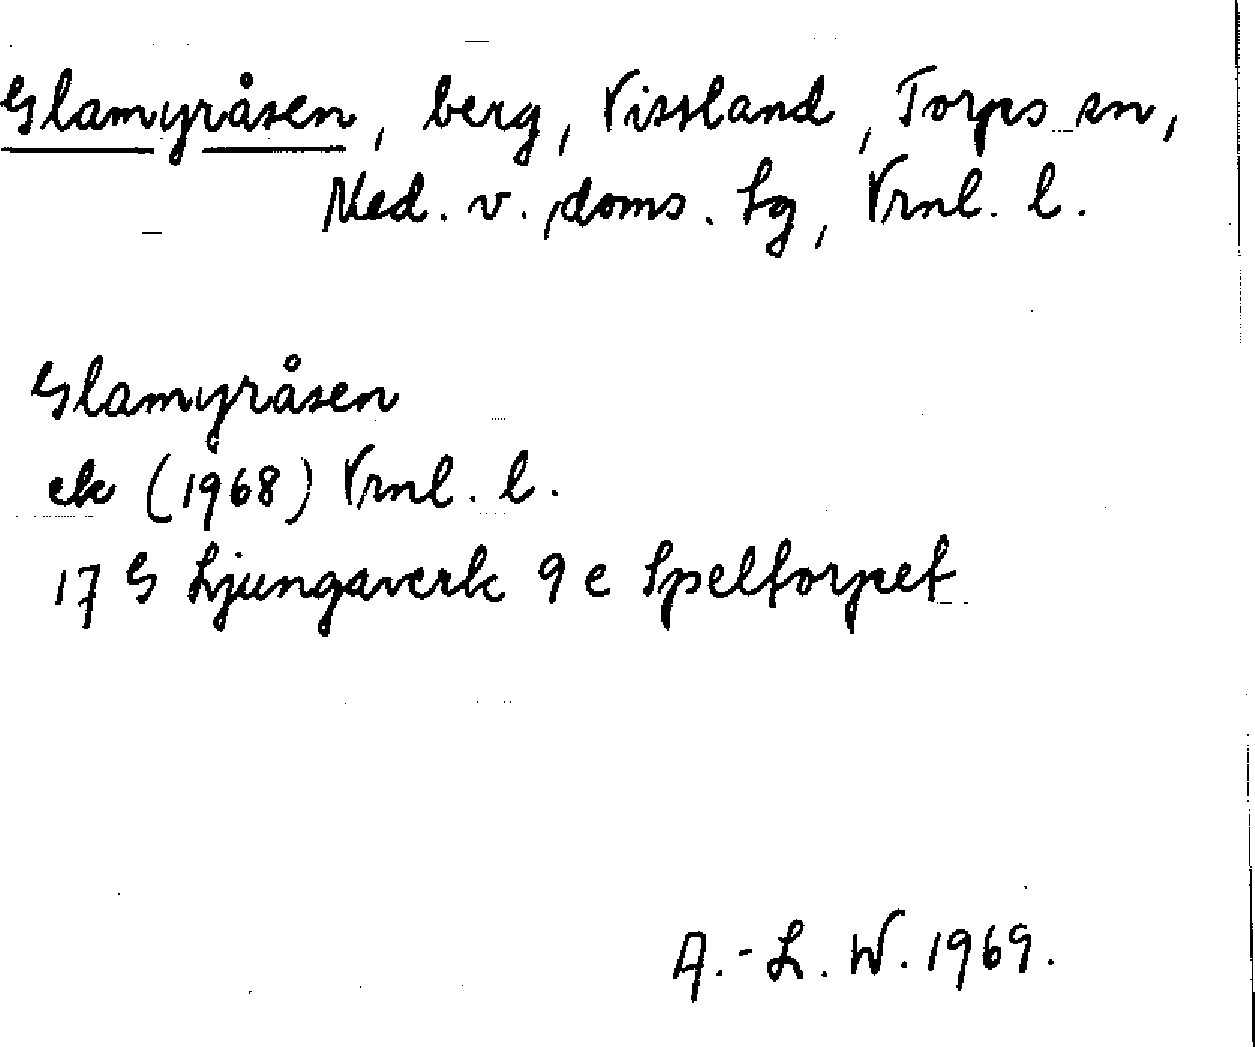 Glamyråsen, berg, Vissland, Torps sn,
Med. v. doms. lg, Vrnl. l.
Glamyråsen
ek (1968) Vrnl. l.
17 G Ljungaverk 9 e Speltorpet
A.-L. W. 1969.